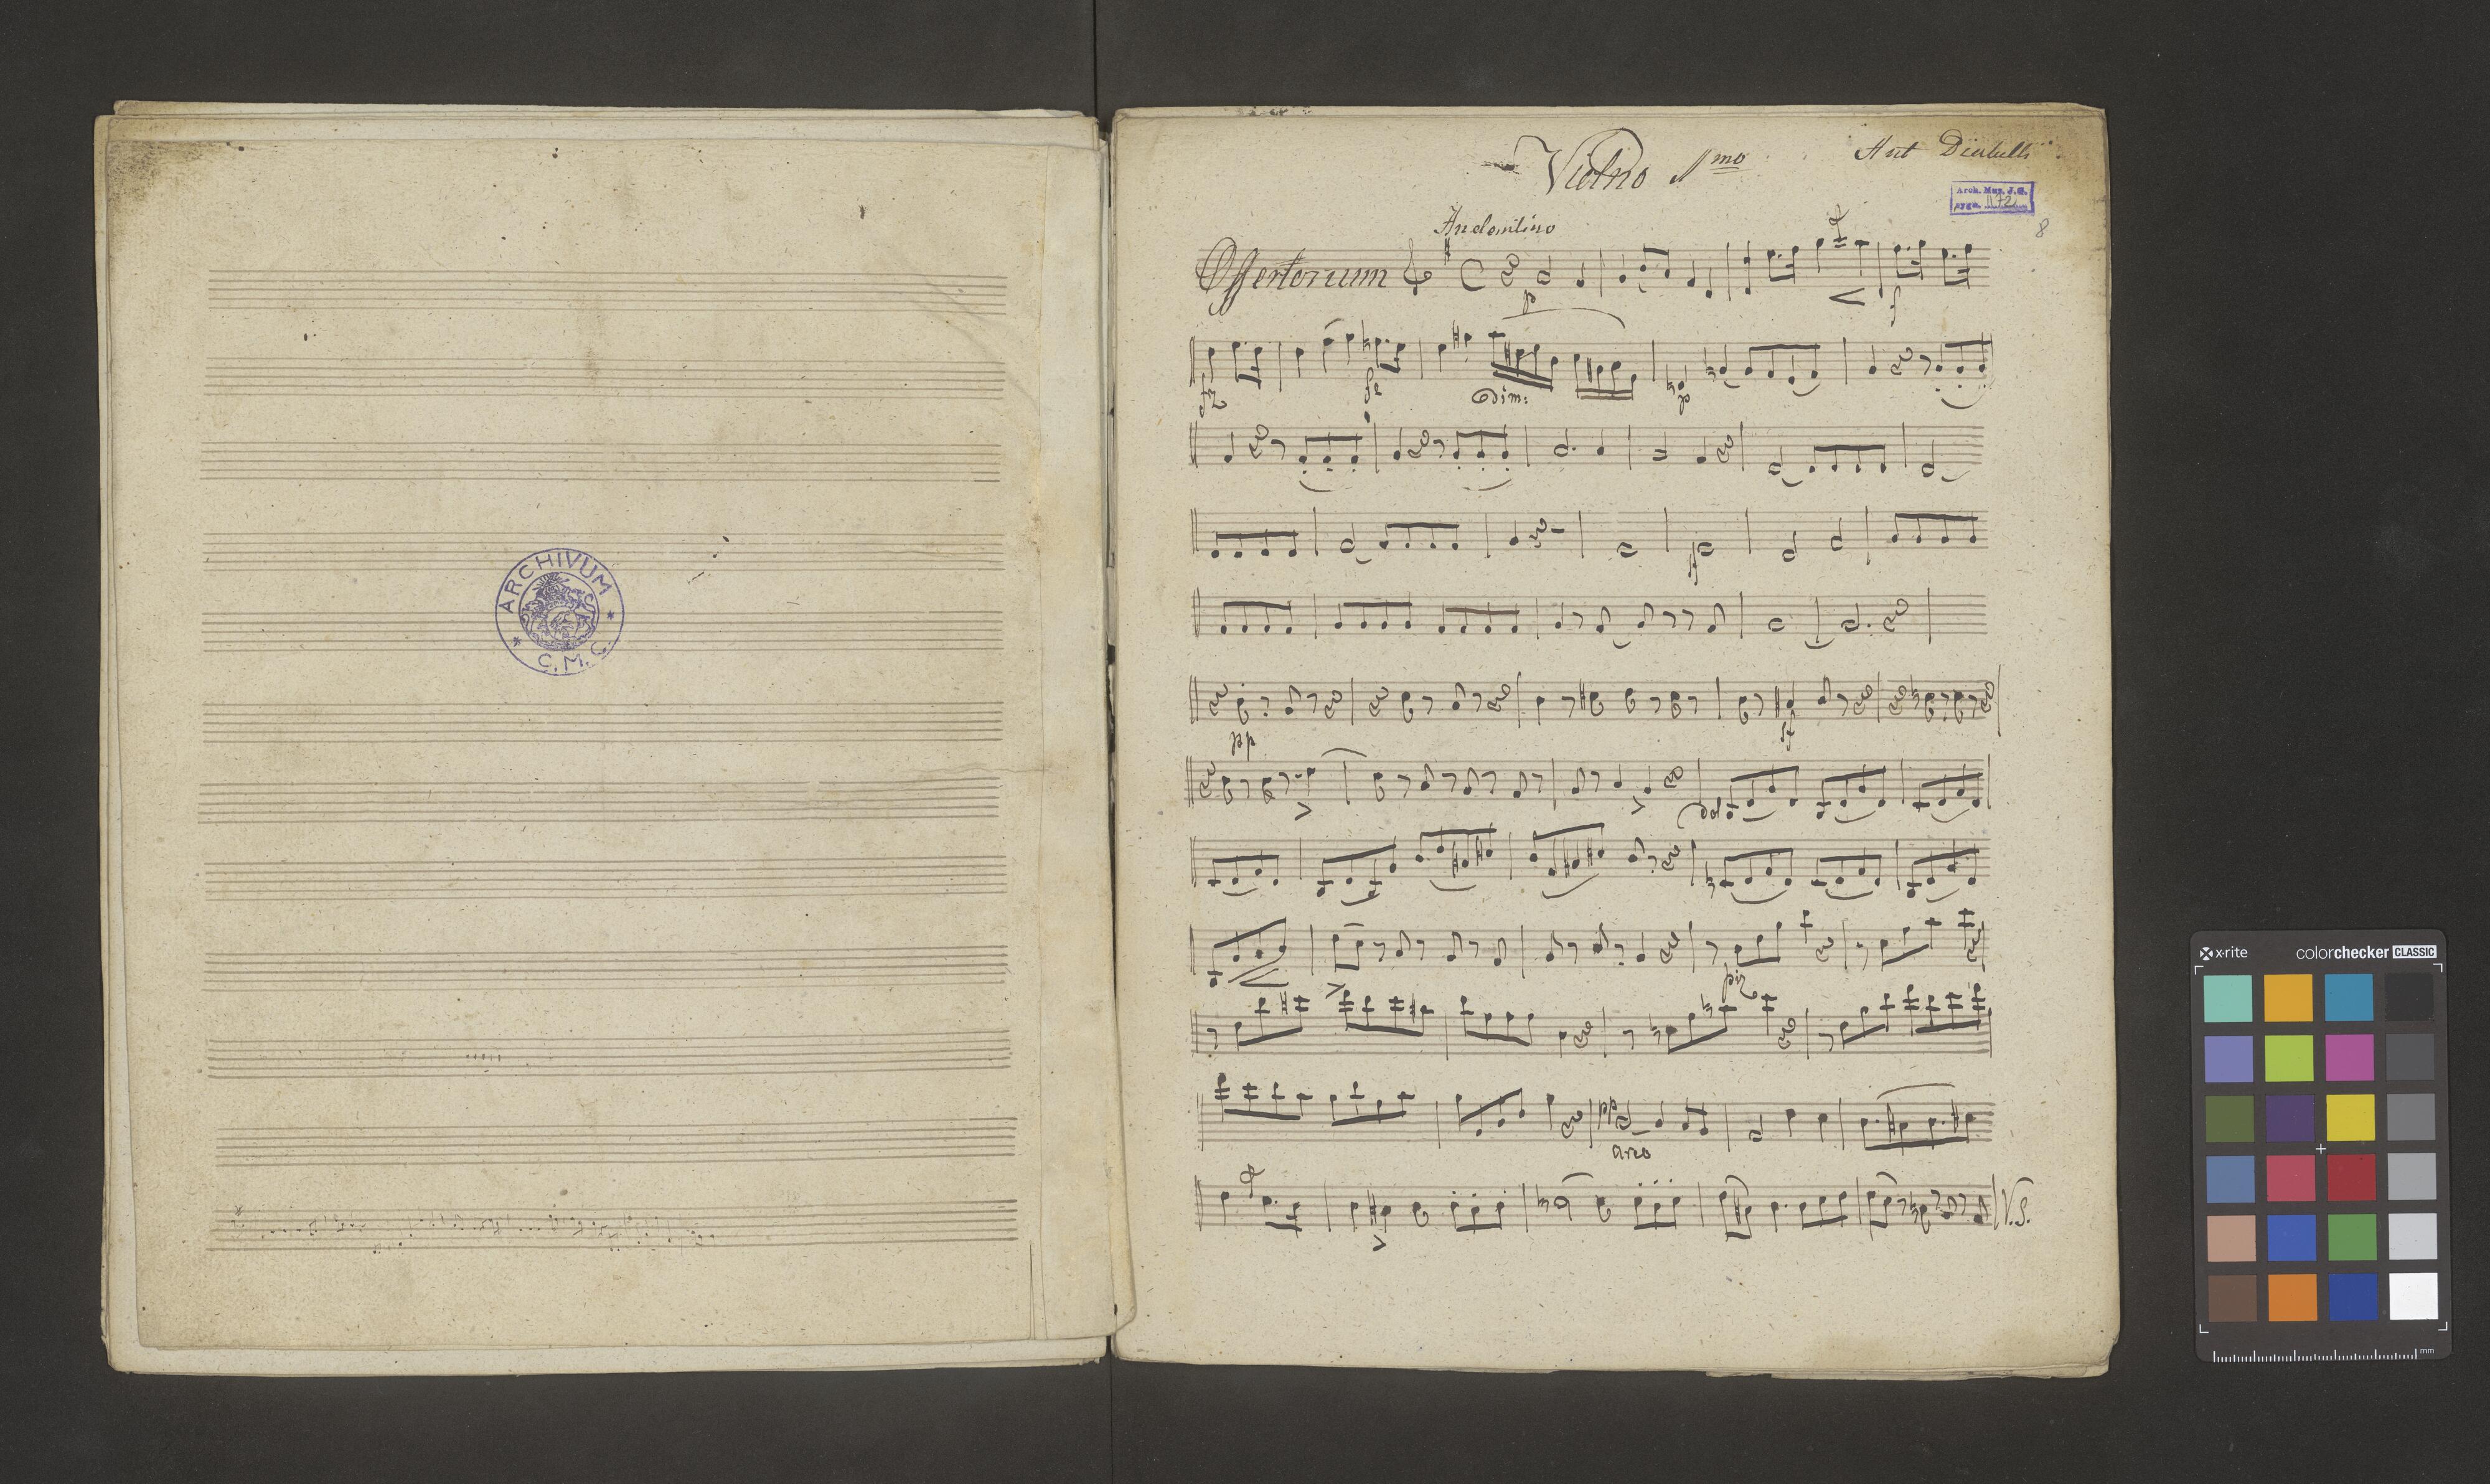 ARCHIVUM
C.M.C.
Violino 1mo
Ant Diabelli
Arch. Mus. J.G.
sygn. 1172
8
Andantino
Offertorium
p
f
fz
fz
dim:
p
pp
dol
piz
pp
arco
V.S.
x·rite
colorchecker CLASSIC
mm